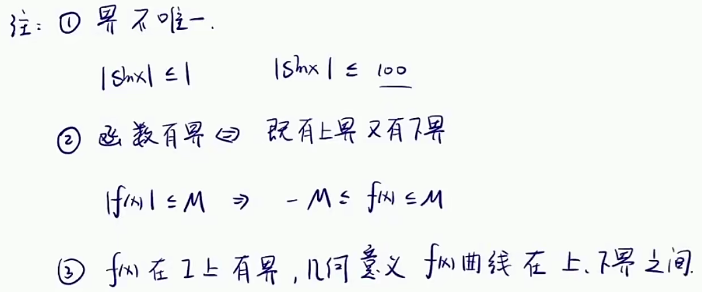 注：① 界不唯一.
|sinx| ≤ 1 |sinx| ≤ 100
② 函数有界 ⇔ 既有上界又有下界
|f(x)| ≤ M ⇒ -M ≤ f(x) ≤ M
③ f(x) 在 I 上有界，几何意义 f(x)曲线在上、下界之间.